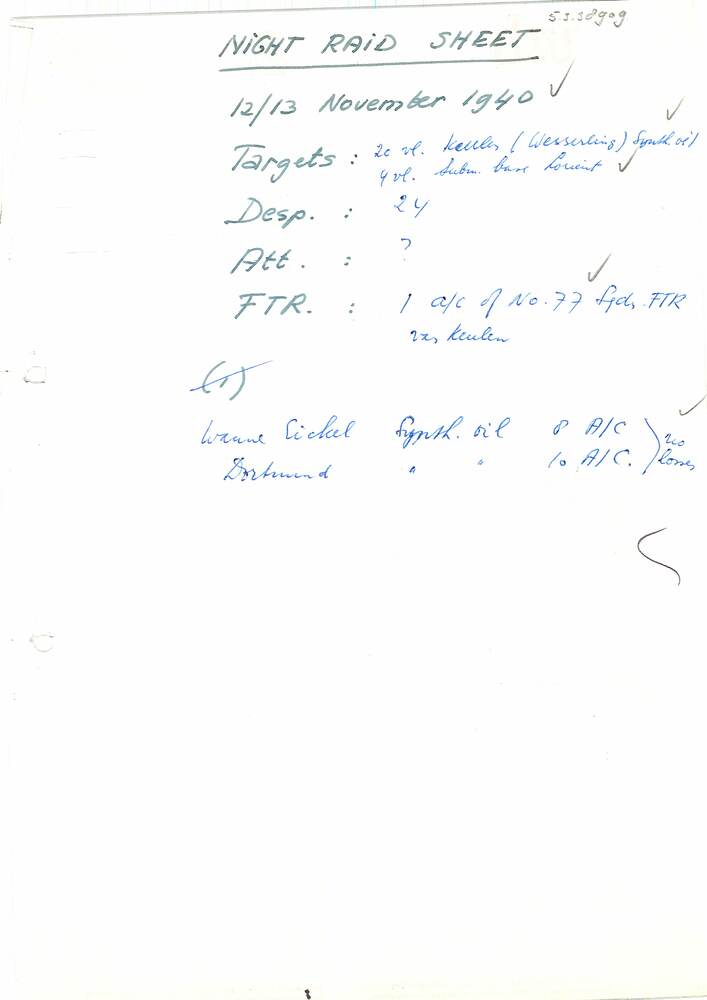 5.3.38909
NIGHT RAID SHEET
12/13 November 1940
Targets : 20 vl. Keulen (Wesserling) Synth. oil
4 vl. Subm. base Lorient
Desp. : 24
Att. : ?
FTR. : 1 a/c of No. 77 Sqdn. FTR
van Keulen
(1)
Wanne Eickel Synth. oil 8 A/C
Dortmund " " 10 A/C.
no
losses